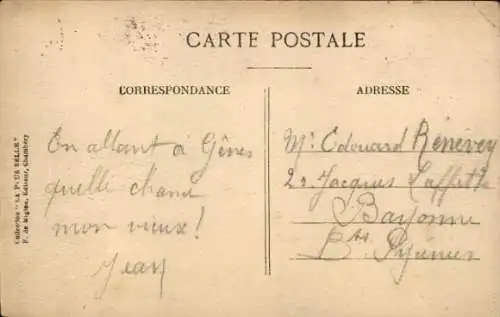 CARTE POSTALE
CORRESPONDANCE
ADRESSE
En allant à Gênes
quelle chance
mon vieux !
Jean
Mr. Edouard Rénevey
2, Jacques Laffitte
Bayonne
Bses Pyrénées
Collection "LA PLUS BELLE"
F. de Miglos, Editeur, Chambéry